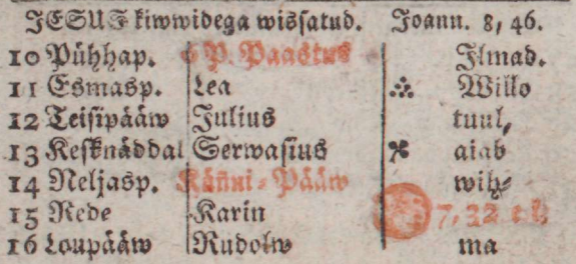 JESUS kiwwidega wissatud. Joann. 8, 46.
10 Pühhap. 6 P. Paastus Ilmad.
11 Esmasp. Lea Willo
12 Teisipääw Julius tuul,
13 Kesknäddal Serwasius aiab
14 Neljasp. Künni-Pääw wih-
15 Rede Karin 7, 32 e. l.
16 Loupääw Rudolw ma